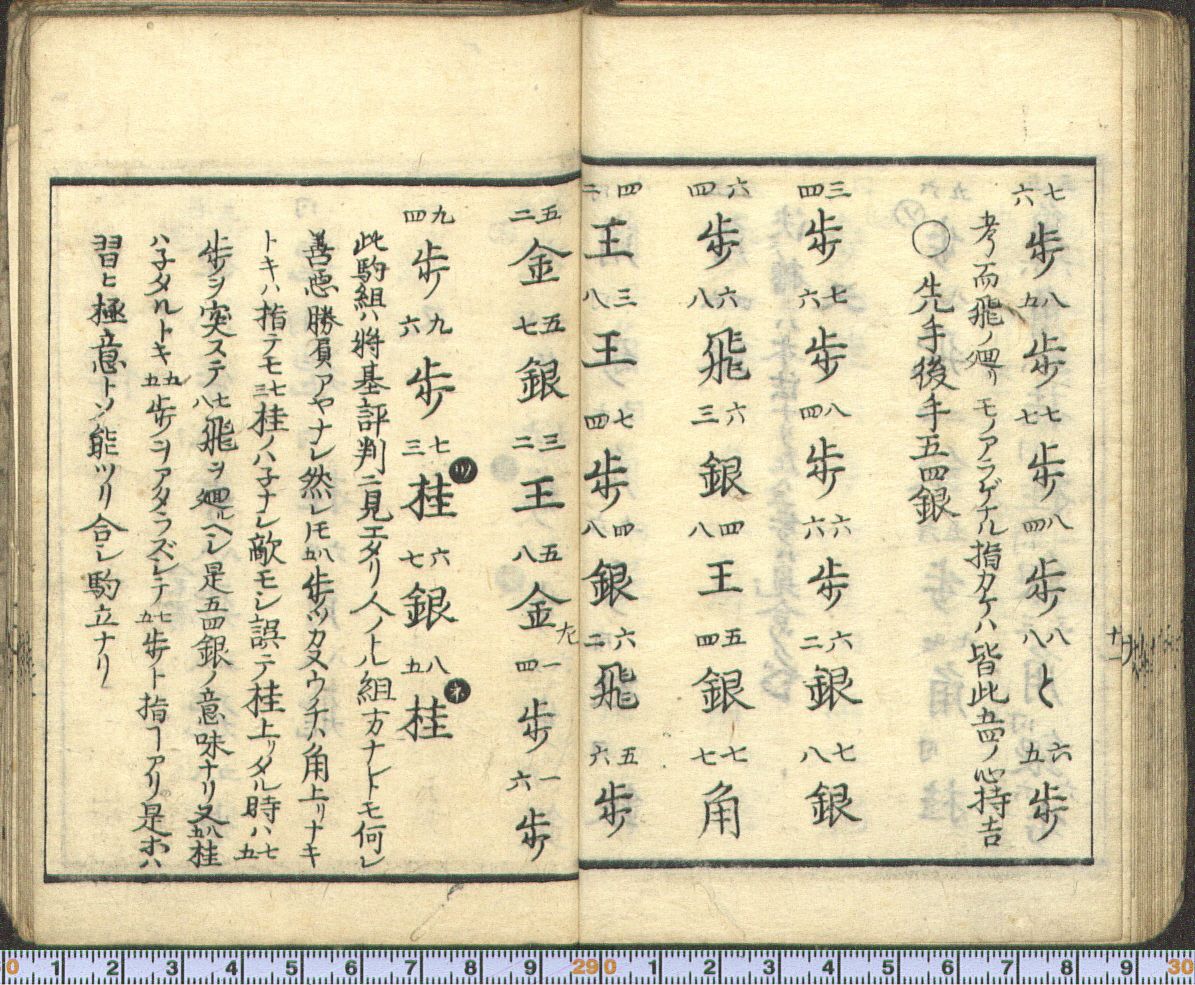 七六歩 八九歩 七七歩 八四歩 八八と 六五歩
考而飛ノ廻リモノアラゲナル指カケハ皆此五四ノ心持吉
○先手後手五四銀
三四歩 七六歩 八四歩 六六歩 六二銀 七八銀
六四歩 六八飛 六三銀 四八王 五四銀 七七角
四二王 三八王 七四歩 四八銀 六二飛 五六歩
五二金 五七銀 三二王 五八金 一四歩 一六歩
九四歩 九六歩 七三桂 ツ 六七銀 八五桂 ネ
此駒組ハ將基評判ニ見エタリ人ノトル組方ナレトモ何レ
善惡勝負アヤナレ然レモ五八歩ツカヌウチハ角上リナキ
トキハ指テモ七三桂ノハ子ナレ敵モシ誤テ桂上リタル時ハ七五
歩ヲ突ステ七八飛ヲ廻ルヘシ是五四銀ノ意味ナリ又八五桂
ハ子タルトキ五五歩ヲアタラズシテ七五歩ト指ヿアリ是ホハ
習ヒ極意トソ能ツリ合シ駒立ナリ